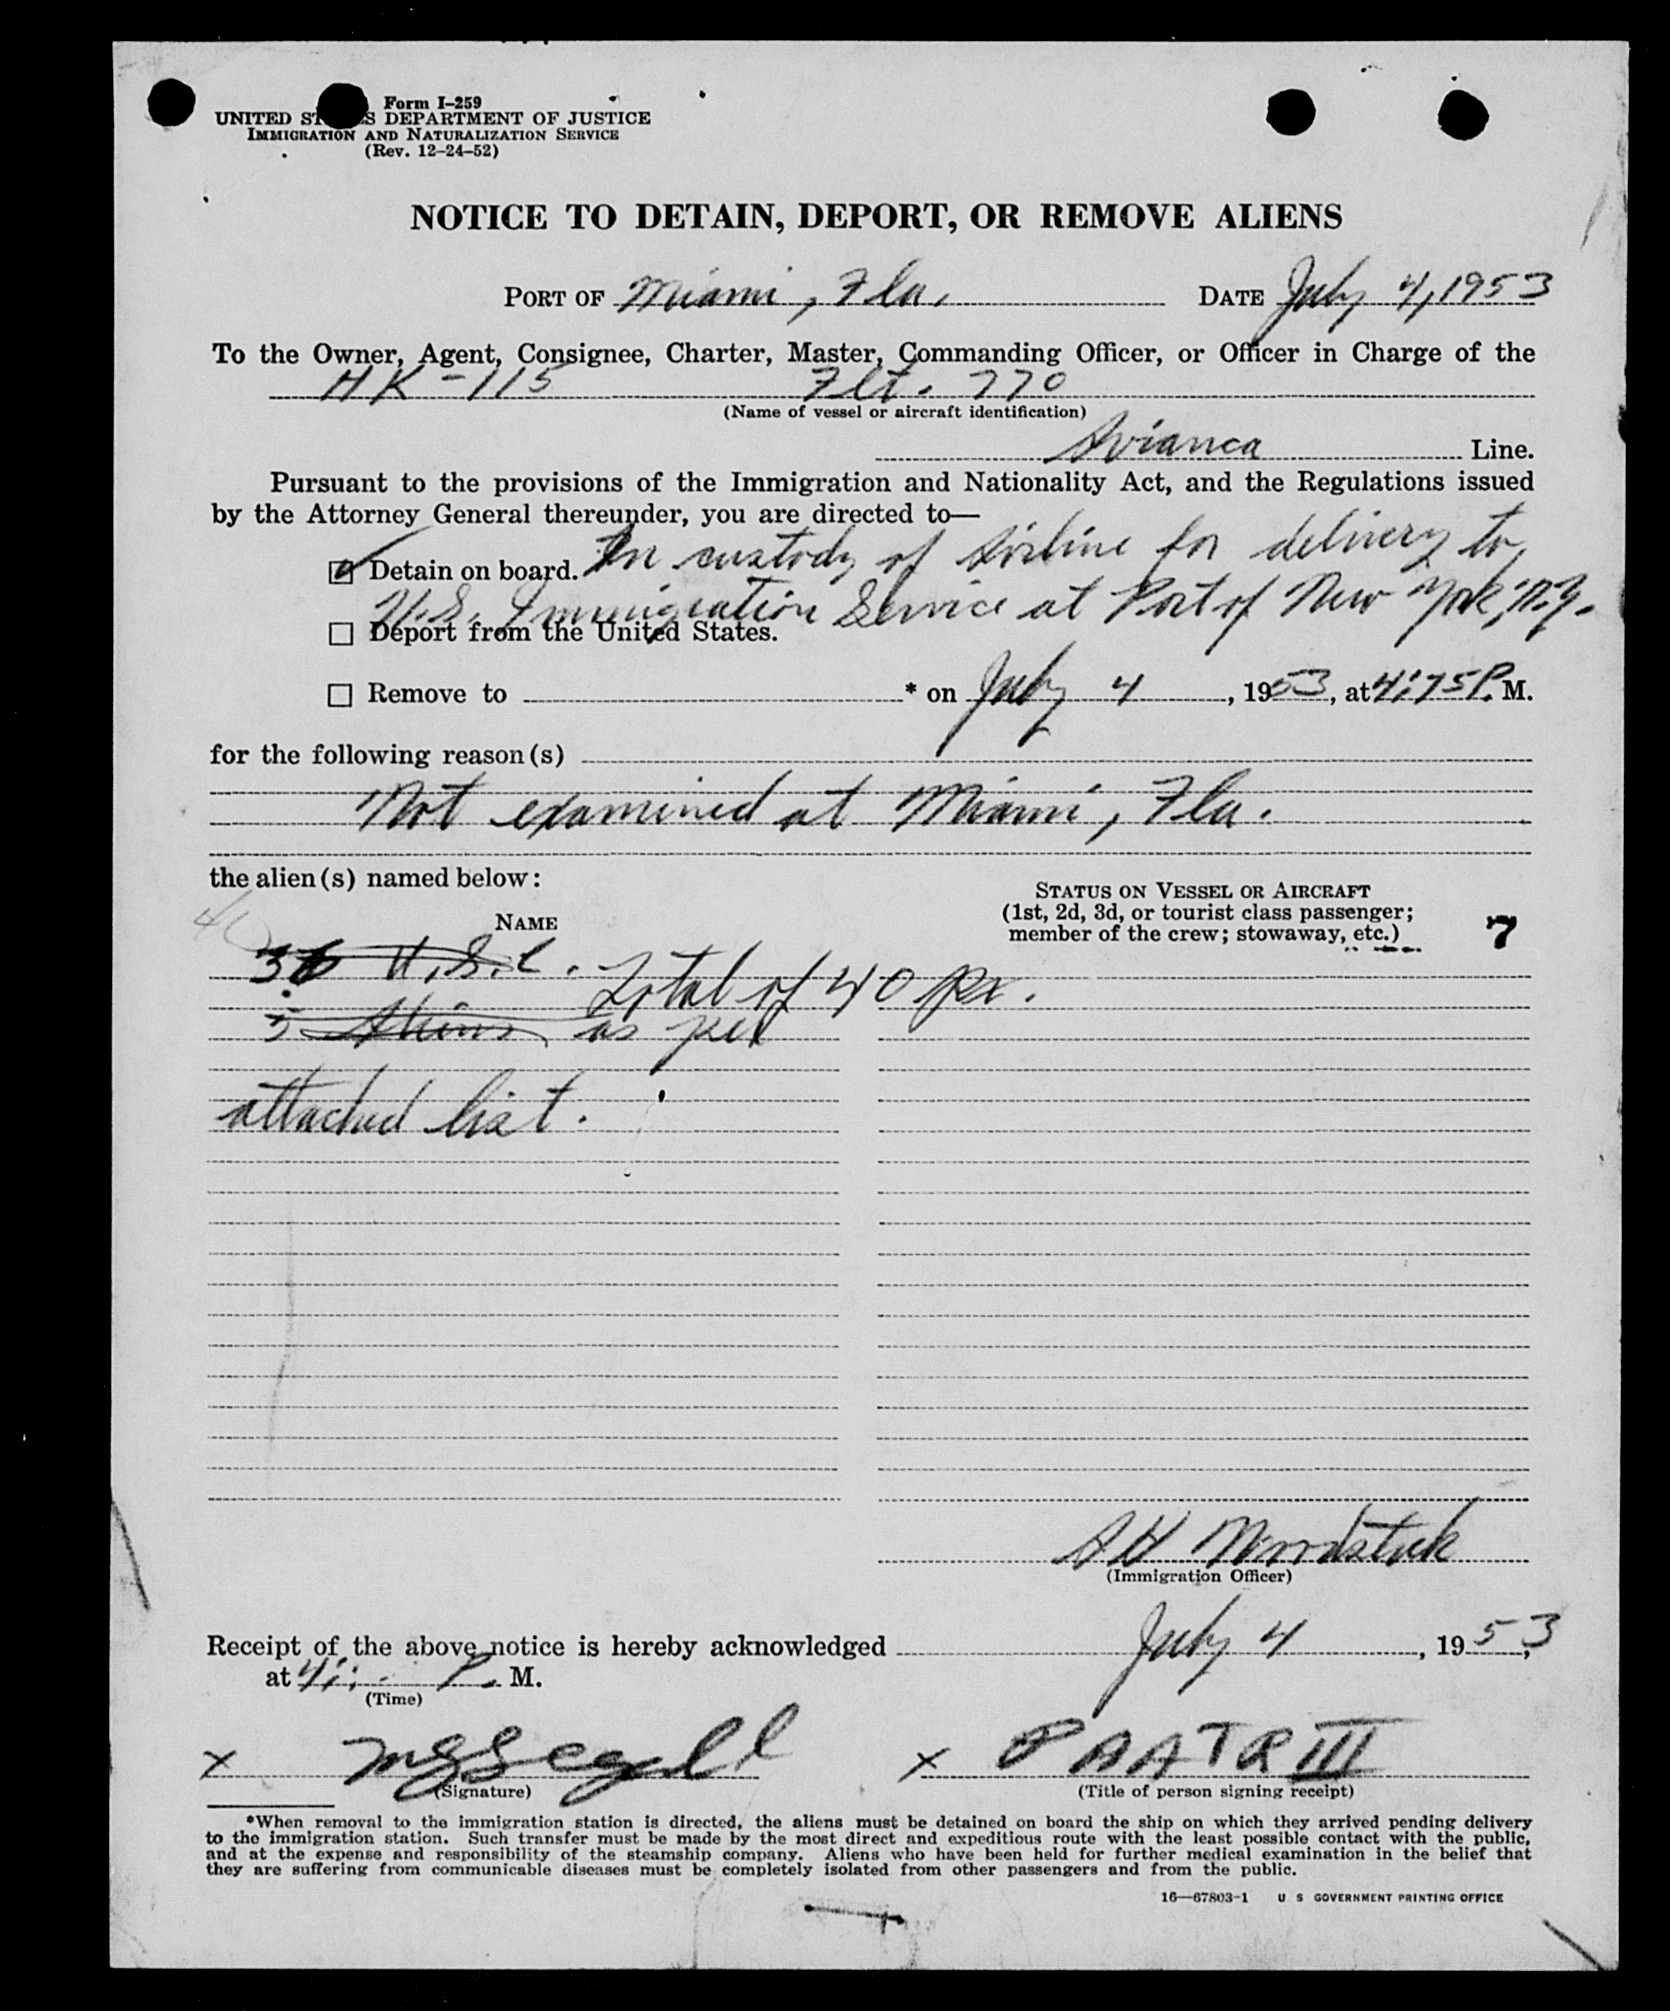 Form I-259
UNITED STATES DEPARTMENT OF JUSTICE
IMMIGRATION AND NATURALIZATION SERVICE
(Rev. 12-24-52)
NOTICE TO DETAIN, DEPORT, OR REMOVE ALIENS
PORT OF Miami, Fla. DATE July 4, 1953
To the Owner, Agent, Consignee, Charter, Master, Commanding Officer, or Officer in Charge of the
HK-115 Flt. 770
(Name of vessel or aircraft identification)
Avianca Line.
Pursuant to the provisions of the Immigration and Nationality Act, and the Regulations issued
by the Attorney General thereunder, you are directed to—
Detain on board. In custody of Airline for delivery to
U.S. Immigration Service at Port of New York, N.Y.
Deport from the United States.
Remove to * on July 4, 1953, at P. M.
for the following reason(s)
Not examined at Miami, Fla.
the alien(s) named below:
STATUS ON VESSEL OR AIRCRAFT
(1st, 2d, 3d, or tourist class passenger;
member of the crew; stowaway, etc.)
7
40
NAME
U.S.C. Total of 40 px.
5 Aliens as per
attached list.
(Immigration Officer)
Receipt of the above notice is hereby acknowledged July 4, 1953,
at 4: P. M.
(Time)
x x PAA TR III
(Signature) (Title of person signing receipt)
*When removal to the immigration station is directed, the aliens must be detained on board the ship on which they arrived pending delivery
to the immigration station. Such transfer must be made by the most direct and expeditious route with the least possible contact with the public,
and at the expense and responsibility of the steamship company. Aliens who have been held for further medical examination in the belief that
they are suffering from communicable diseases must be completely isolated from other passengers and from the public.
16—67803-1 U S GOVERNMENT PRINTING OFFICE